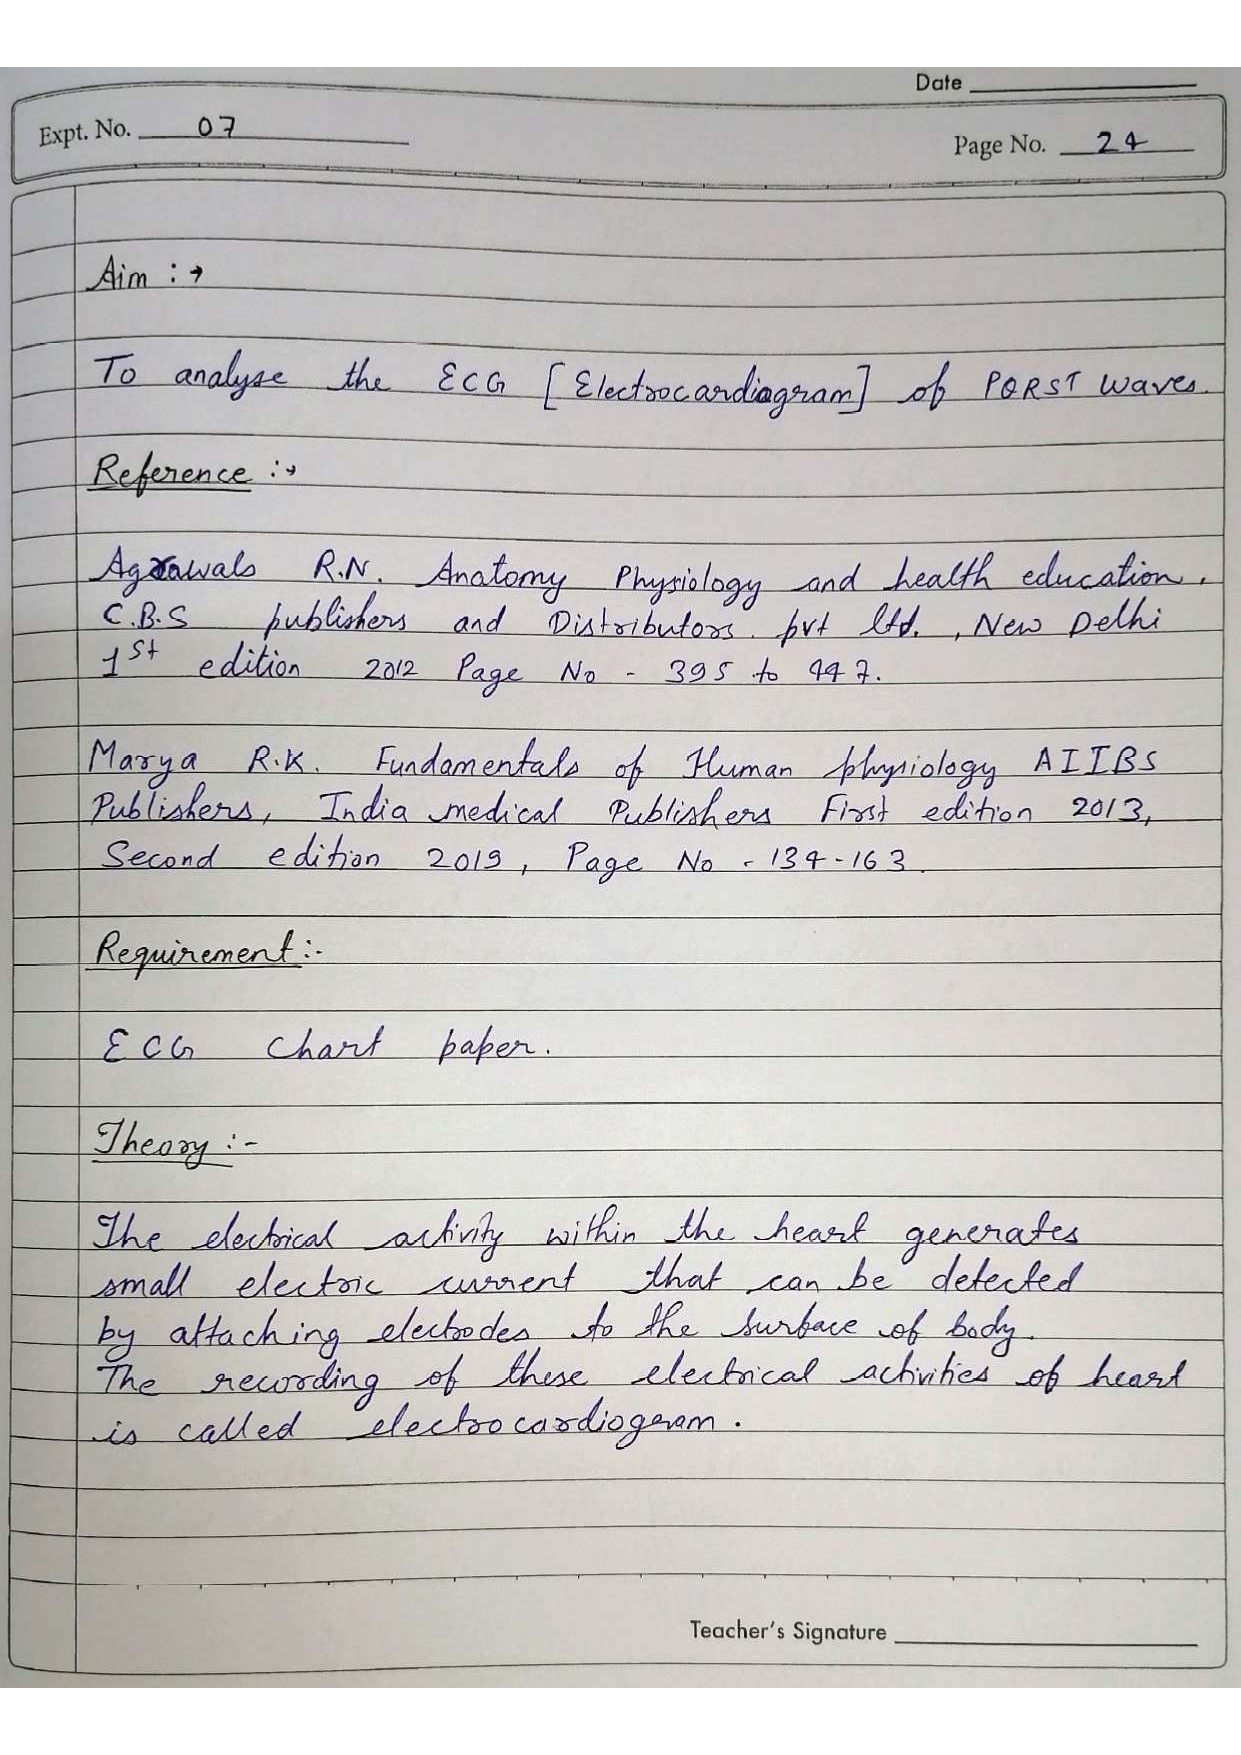 Date
Expt. No. 07
Page No. 24
Aim :→
To analyse the ECG [Electrocardiagram] of PQRST waves.
Reference :→
Agrawals R.N. Anatomy Physiology and health education,
C.B.S publishers and Distributors. pvt ltd. , New Delhi
1st edition 2012 Page No - 395 to 447.
Marya R.K. Fundamentals of Human physiology AIIBS
Publishers, India medical Publishers First edition 2013,
Second edition 2019, Page No - 134-163.
Requirement :-
ECG Chart paper.
Theory :-
The electrical activity within the heart generates
small electric current that can be detected
by attaching electrodes to the surface of body.
The recording of these electrical activities of heart
is called electrocardiogeram.
Teacher's Signature